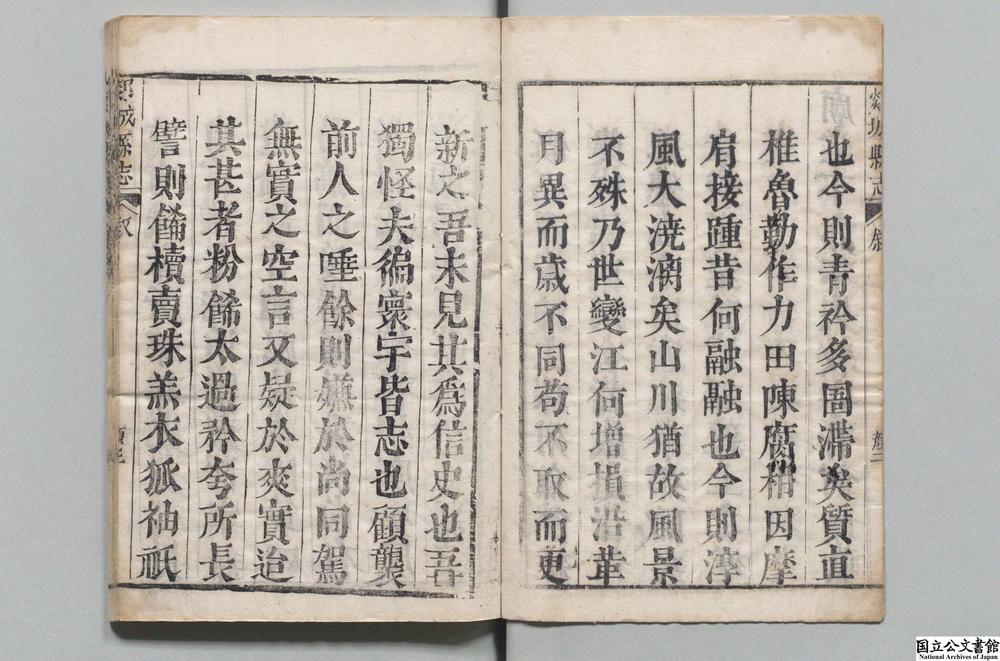 也今則青衿多圄滯矣質直
椎魯勤作力田陳腐相因摩
肩接踵昔何融融也今則淳
風大澆漓矣山川猶故風景
不殊乃世變江何增損沿革
月異而歲不同苟不取而更
新之吾未見其為信史也吾
獨怪夫徧寰宇皆志也顧襲
前人之唾餘則嫌於尚同駕
無實之空言又疑於爽實迨
其甚者粉餙太過矜夸所長
譬則餙櫝賣珠羔衣狐袖祇
城縣志
国立公文書館
National Archives of Japan